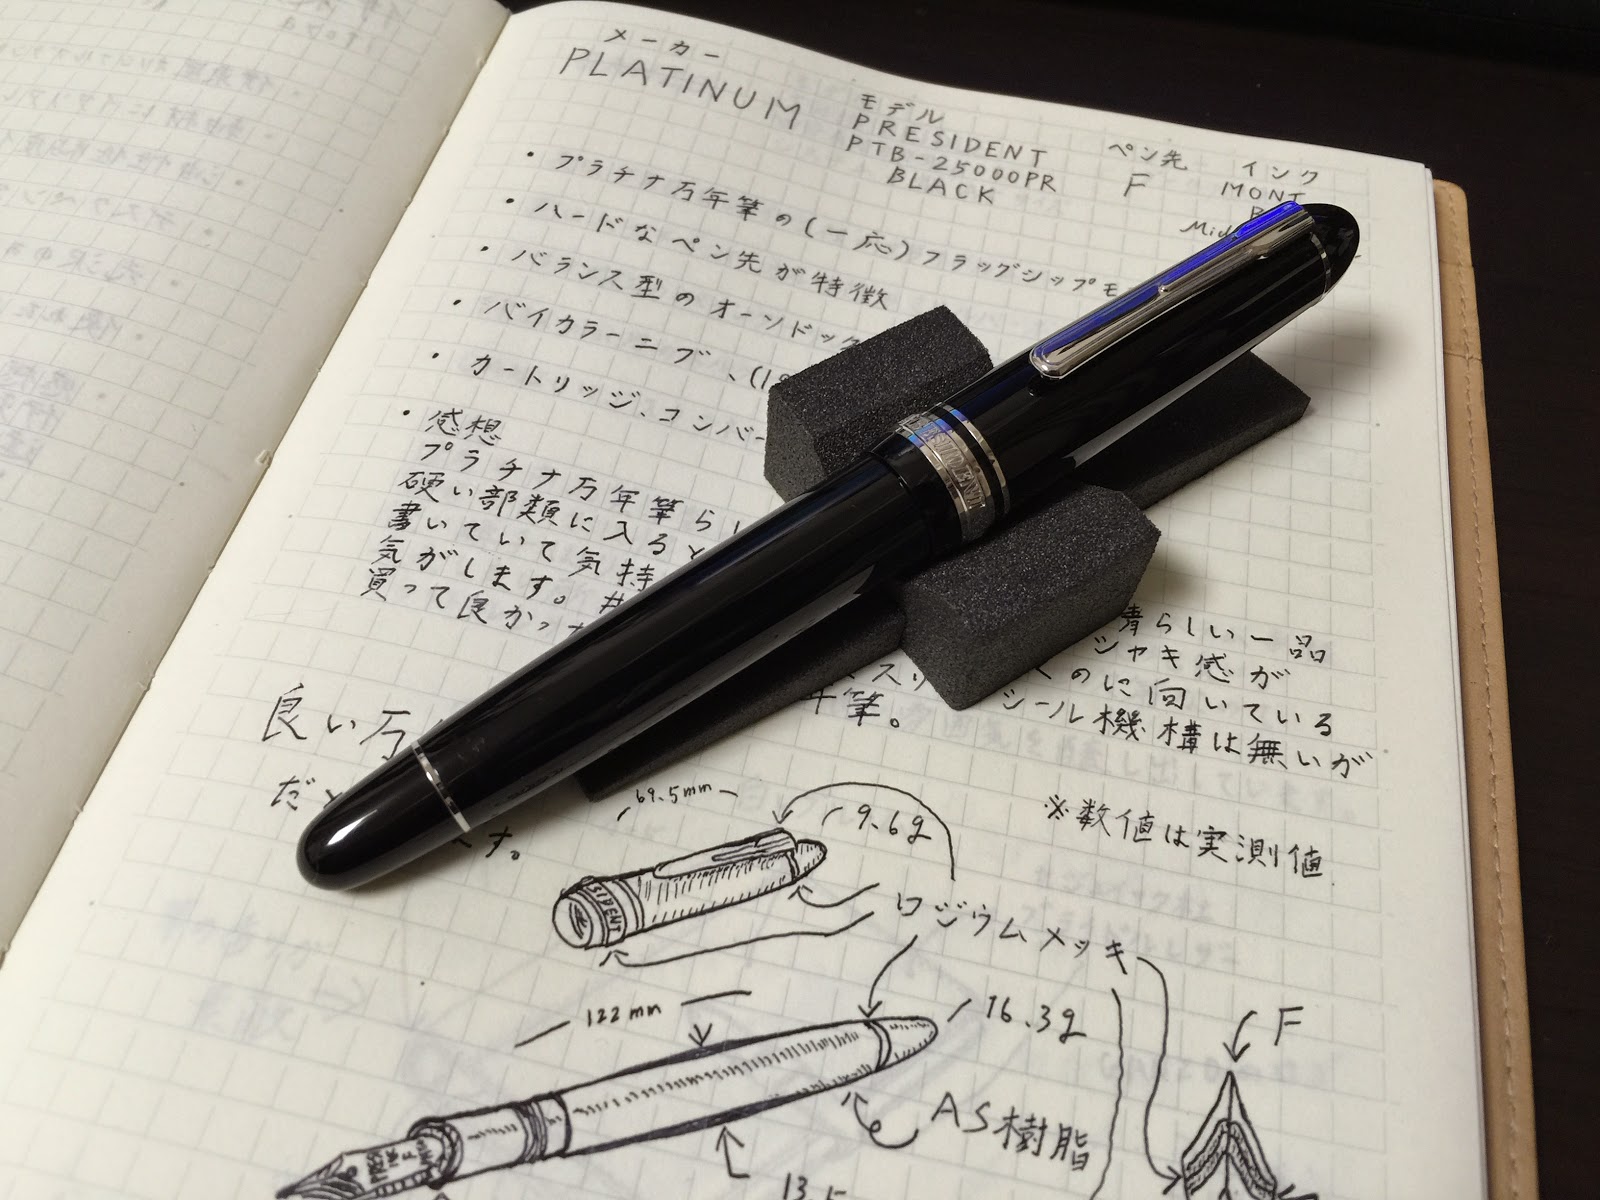 メーカー
PLATINUM
モデル
PRESIDENT
PTB-25000PR
BLACK
ペン先
F
インク
MONT
・プラチナ万年筆の(一応)フラッグシップモ
・ハードなペン先が特徴
・バランス型のオーソドック
・バイカラーニブ、(18
・カートリッジ、コンバー
・感想
プラチナ万年筆らし
硬い部類に入ると
書いていて気持
気がします。
買って良かっ
晴らしい一品
シャキ感が
くのに向いている
シール機構は無いが
年筆。
良い万
だと
す。
PRESIDENT
69.5mm
9.6g
※数値は実測値
SIDENT
ロジウムメッキ
122mm
16.3g
F
AS樹脂
13.5